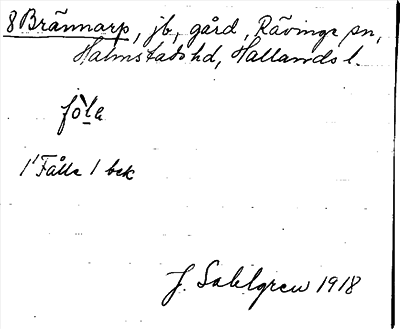 8 Brännarp, jb, gård, Rävinge sn,
Halmstads hd, Hallands l.
fòla
1' Fälle 1 bek
J. Sahlgren 1918